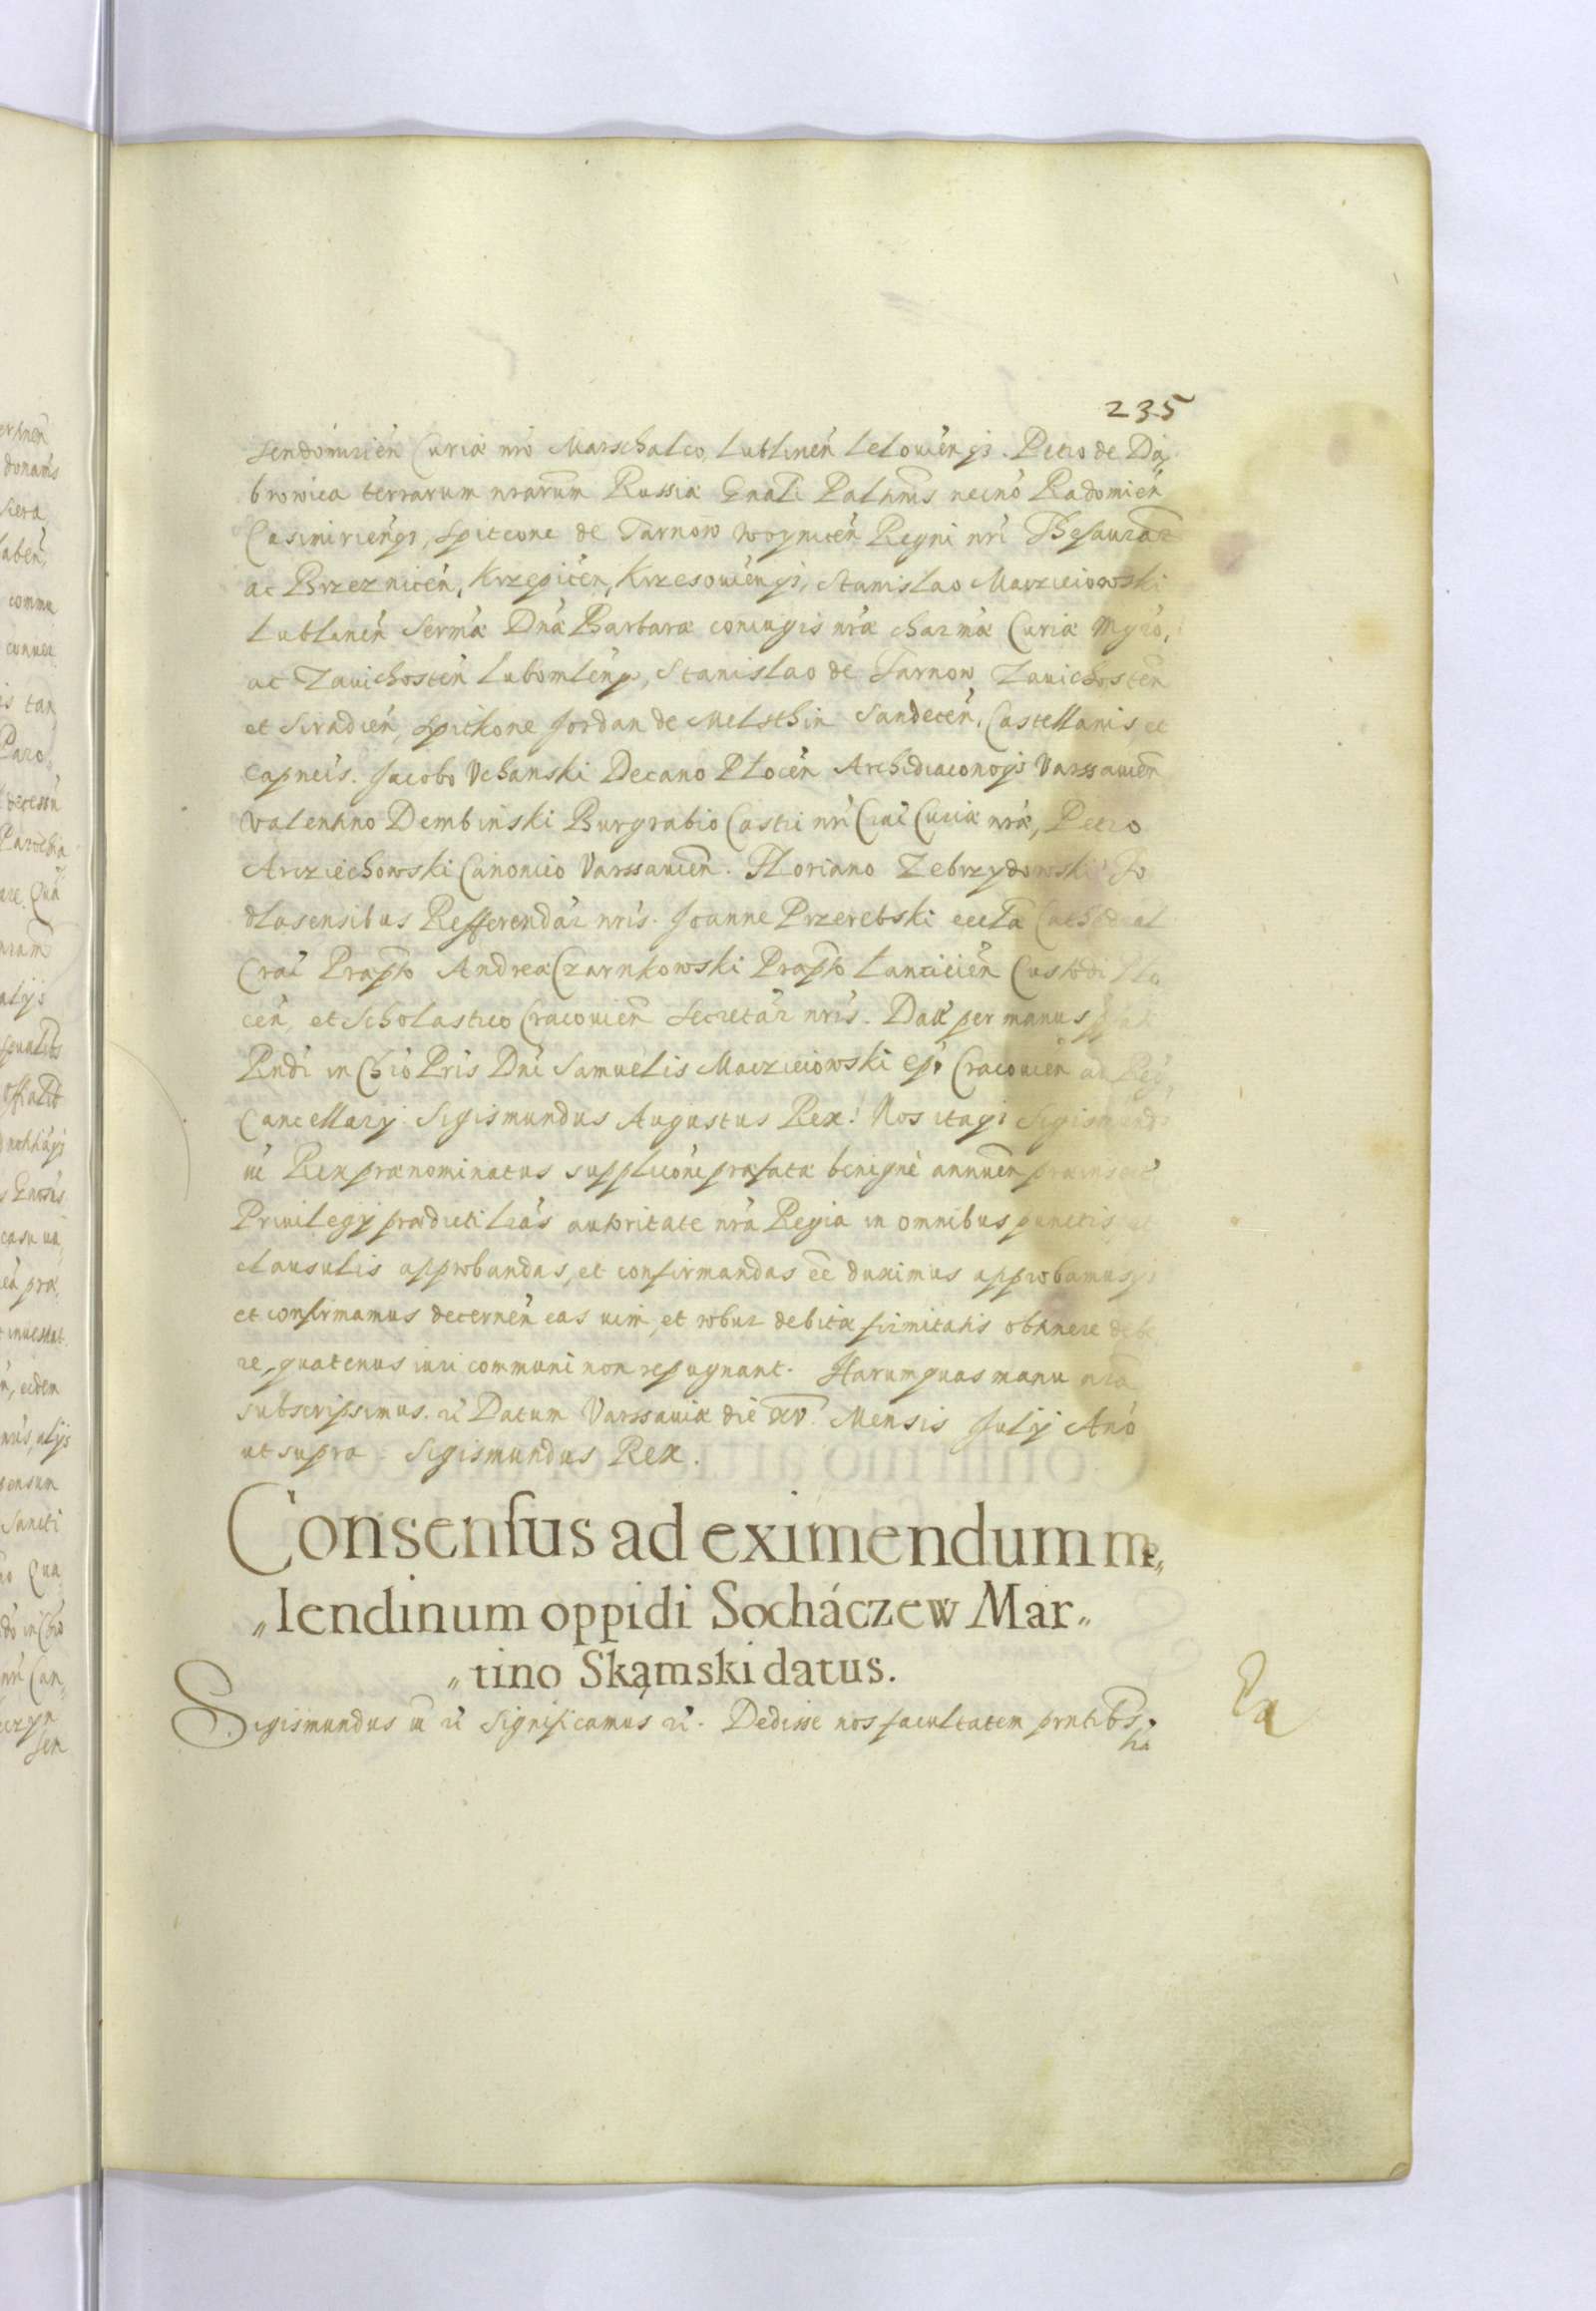 235
Sendomirien Curiæ nrõ Marschalco, Lublinen Lelouiengs. Petro de Dą„
browica terrarum nrarum Russiæ Gnali Palatinis necnõ Radomien
Casimiriengs, Spitcone de Tarnow Woynicen Regni nri Thesaurar
ac Brzeznicen, Krzepicen, Krzesouiengs, Stanislao Macziciowski
Lublinen Sermæ Dnæ Barbaræ coniugis nræ charmæ Curiæ Mgro,
ac Zauichosten Lubomlengs, Stanislao de Tarnow Zauichosten
et Siradien, Spitkone Jordan de Melsthin Sandecen, Castellanis, et
Capneis. Jacobo Vchanski Decano Plocen Archidiaconoqs Varssauien
Valentino Dembinski Burgrabio Castri nri Crai Curiæ nræ, Petro
Arciechowski Canonico Varssauien. Floriano Zebrzydowski
dlasensibus Refferendar nris. Joanne Przerebski eccla Cathedral
Crai Præpto Andrea Czarnkowski Præpto Lancicien Custodi Plo
cen, et Scholastico Cracouien Secretar nris. Dat per manus
Rndi in Chro Pris Dni Samuelis Macziciowski Epi Cracouien
Cancellarij Sigismundus Augustus Rex. Nos itaqs Sigismundus
iii Rex prænominatus supplicõni præfatæ benignè annuen
Priuilegij prædicti lras autoritate nra Regia in omnibus punctis et
clausulis approbandas, et confirmandas ee duximus approbamusqs
et confirmamus decernen eas uim, et robur debitæ firmitatis obtinere debe
re, quatenus iuri communi non repugnant. Harum quas manu nra
subscripsimus. rc Datum Varssauiæ die XV. Mensis Julij Anõ
ut supra. Sigismundus Rex.
Consensus ad eximendum mo„
„lendinum oppidi Socháczew Mar„
„tino Skąmski datus.
Sigismundus iii rc Significamus rc. Dedisse nos facultatem prntibs,